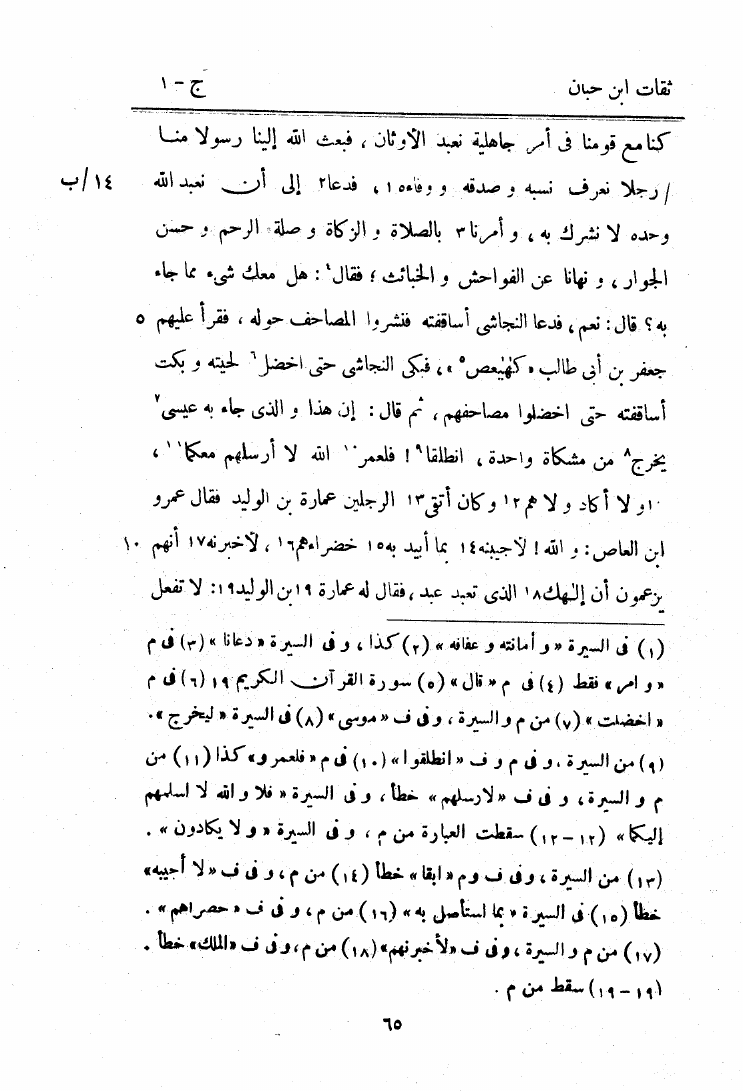 ثقات ابن حبان ج - ١
كنا مع قومنا فى أمر جاهلية نعبد الأوثان ، فبعث الله إلينا رسولا منا
/ رجلا نعرف نسبه و صدقه و وفاءه١ ، فدعا٢ إلى أن نعبد الله ١٤/ب
وحده لا نشرك به ، و أمرنا٣ بالصلاة و الزكاة و صلة الرحم و حسن
الجوار ، و نهانا عن الفواحش و الخبائث ؛ فقال٤ : هل معك شىء مما جاء
به ؟ قال : نعم ، فدعا النجاشى أساقفته فنشروا المصاحف حوله ، فقرأ عليهم ٥
جعفر بن أبى طالب « كهٰيٰعص٥ » ، فبكى النجاشى حتى اخضل٦ لحيته و بكت
أساقفته حتى اخضلوا مصاحفهم ، ثم قال : إن هذا و الذى جاء به عيسى٧
يخرج٨ من مشكاة واحدة ، انطلقا٩ ! فلعمر١٠ الله لا أرسلهم معكما١١ ،
١٠و لا أكاد و لا هم١٢ وكان أتقى١٣ الرجلين عمارة بن الوليد فقال عمرو
ابن العاص : و الله ! لأجيبنه١٤ بما أبيد به١٥ خضراءهم١٦ ، لأخبرنه١٧ أنهم ١٠
يزعمون أن إلهك١٨ الذى تعبد عبد ، فقال له عمارة ١٩بن الوليد١٩ : لا تفعل
(١) فى السيرة « و أمانته و عفافه » (٢) كذا ، و فى السيرة « دعانا » (٣) فى م
« و امر » نقط (٤) فى م « قال » (٥) سورة القرآن الكريم ١٩ (٦) فى م
« اخضلت » (٧) من م و السيرة ، و فى ف « موسى » (٨) فى السيرة « ليخرج » .
(٩) من السيرة ، و فى م و ف « انطلقوا » (١٠) فى م « فلعمرو » كذا (١١) من
م و السيرة ، و فى ف « لارسلهم » خطأ ، و فى السيرة « فلا و الله لا اسلمهم
إليكما » (١٢-١٢) سقطت العبارة من م ، و فى السيرة « و لا يكادون » .
(١٣) من السيرة ، و فى ف و م « ابقا » خطأ (١٤) من م ، و فى ف « لا أجيبه »
خطأ (١٥) فى السيرة « بما استأصل به » (١٦) من م ، و فى ف « حصراهم » .
(١٧) من م و السيرة ، و فى ف « لأخبرنهم » (١٨) من م ، و فى ف « الملك » خطأ .
(١٩-١٩) سقط من م .
٦٥